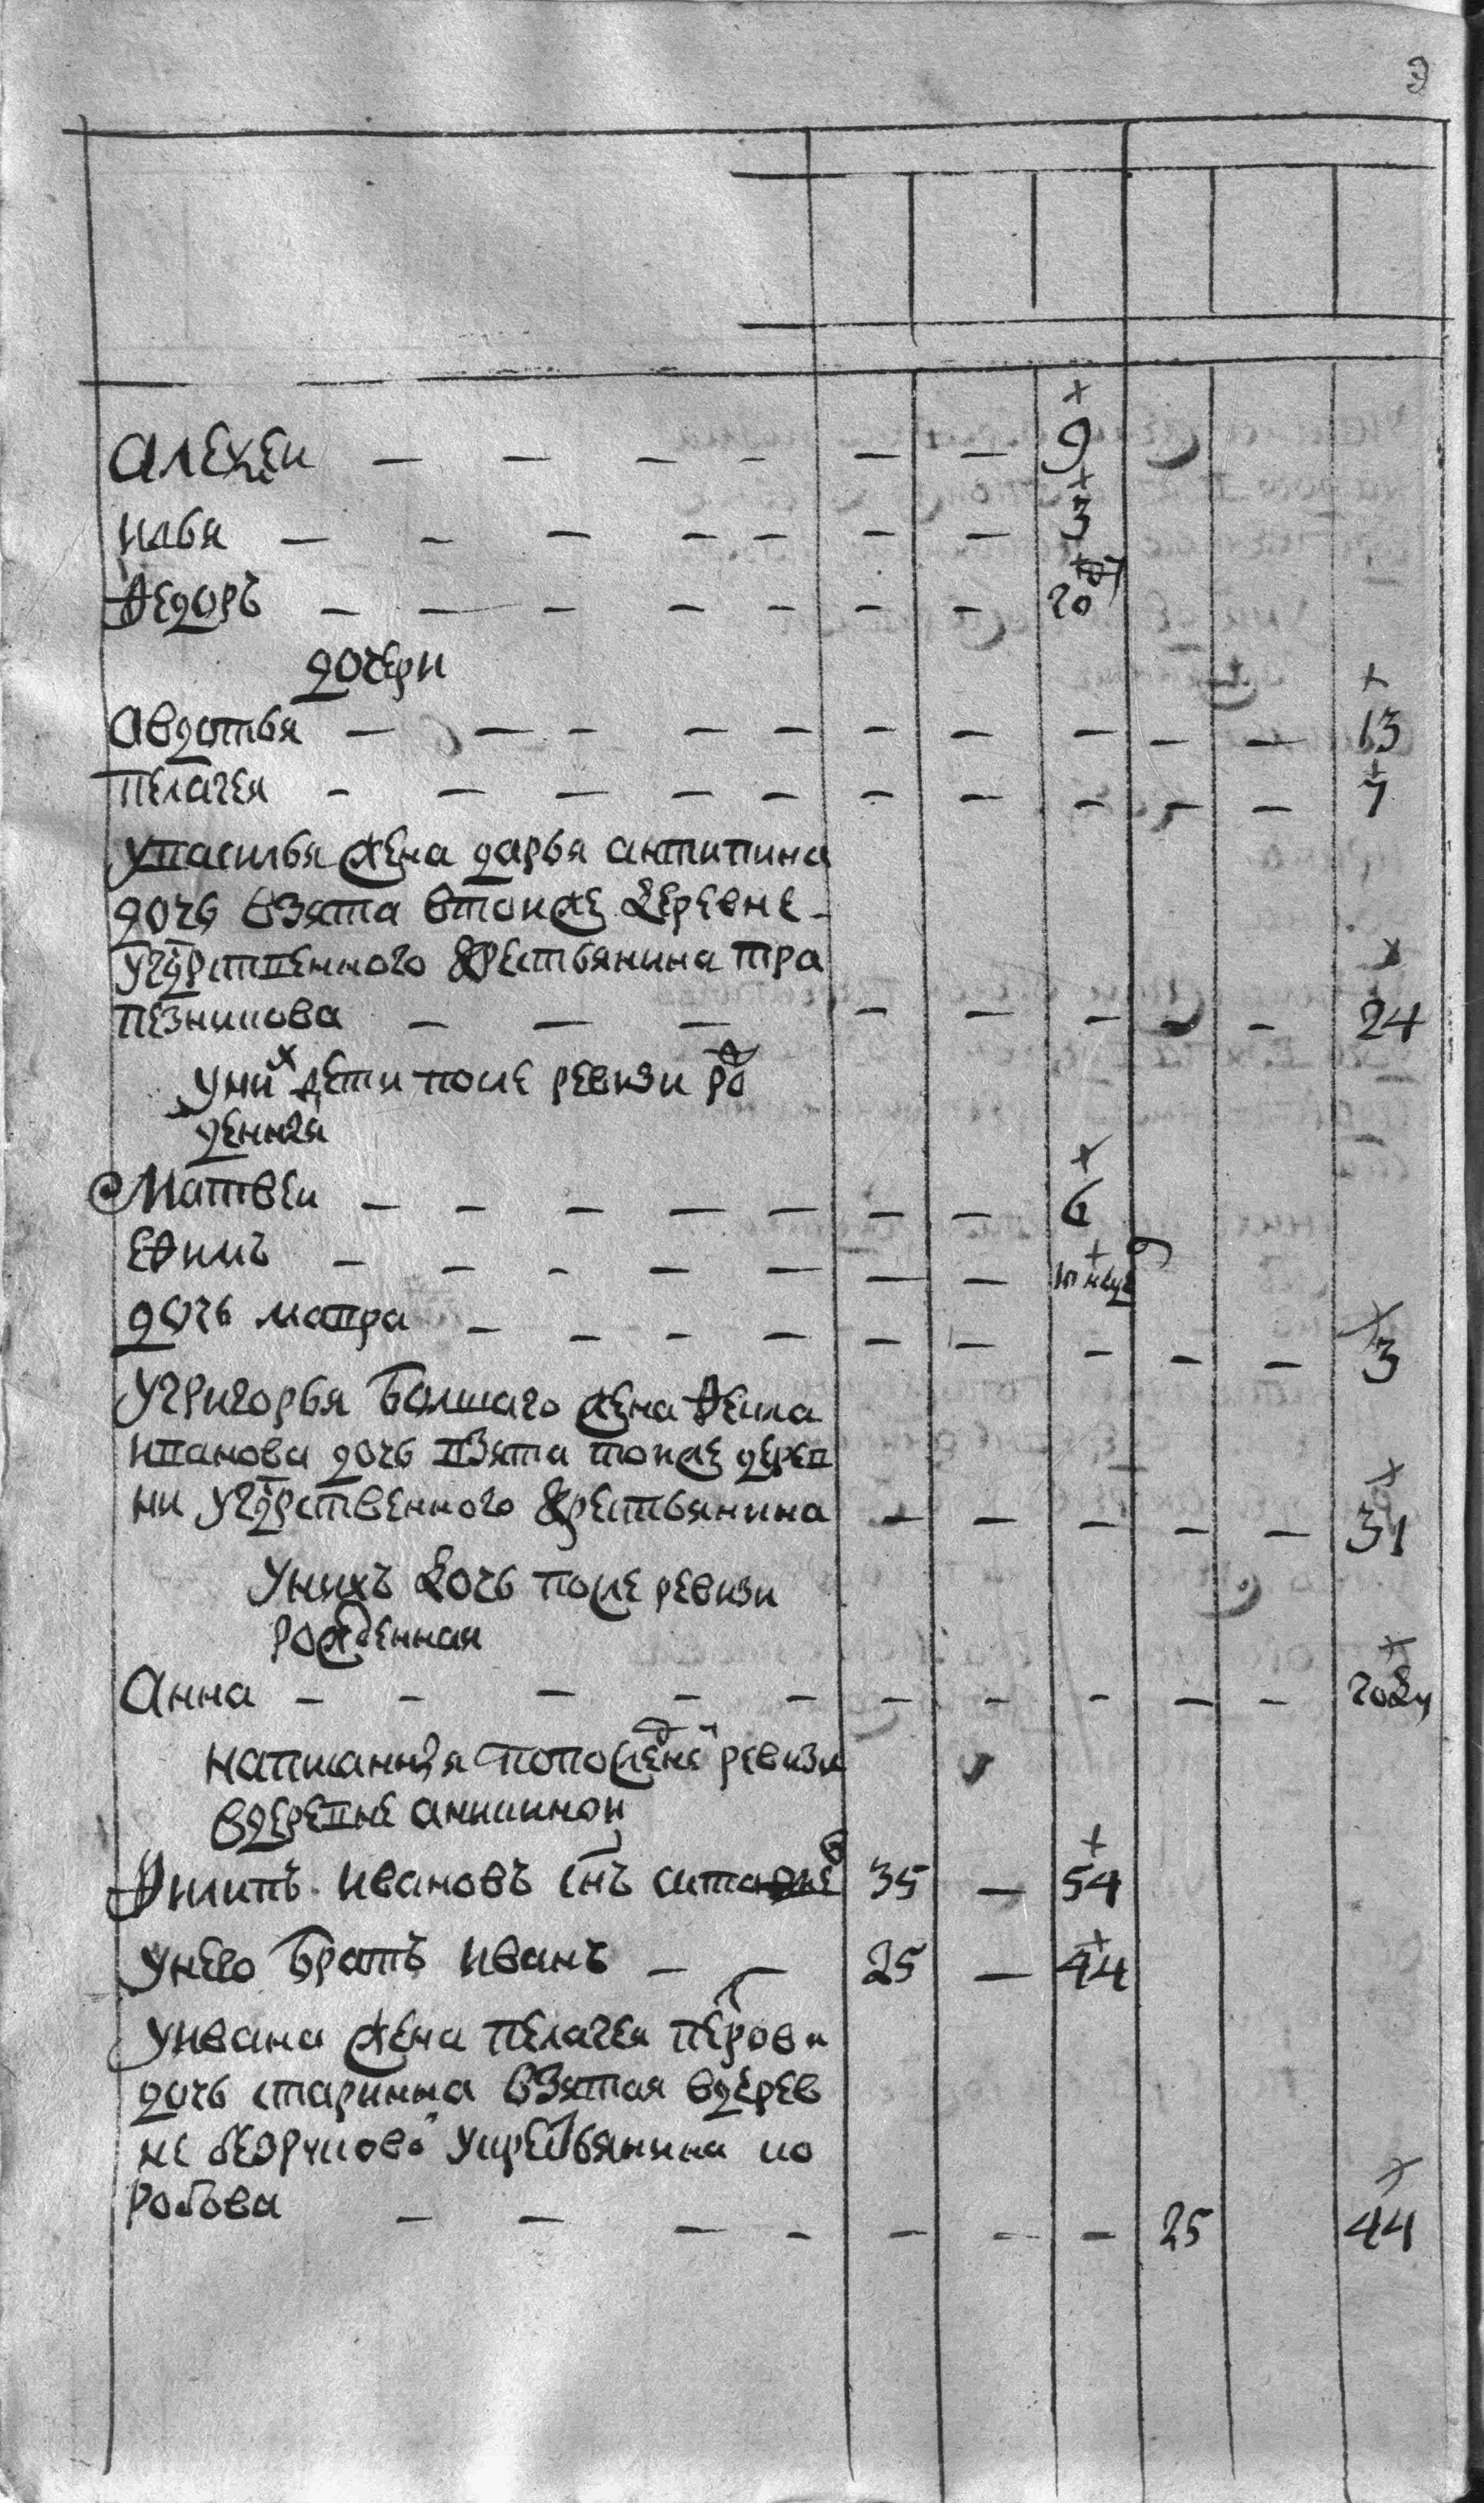 Алексеи — — — — — — 9
Илья — — — — — — — 3
Федоръ — — — — — — — 20
дочери
Авдотья — — — — — — — — — — 13
Пелагея — — — — — — — — — — 7
У Василья жена Дарья Антипина
дочь взята в тоиже деревне
у гдрственного крестьянина Тра
пезникова — — — — — — — — 24
У них дети после ревизи ро
жденныя
Матвеи — — — — — — — 6
Ефимъ — — — — — — —
дочь Мавра — — — — — — — — — 3
У Григорья Болшаго жена Фекла
Иванова дочь взята тоиже дерев
ни у гдрственного крестьянина — — — — — 31
У нихъ дочь после ревизи
рожденная
Анна — — — — — — — — — — году
написанныя по последней ревизи
в деревне Аникиной
Филипъ Ивановъ снъ 35 — 54
У него братъ Иванъ — — 25 — 44
У Ивана жена Пелагея Петрова
дочь старинна взятая в дерев
не у кретьянина Ко
робова — — — — — — — 25 44